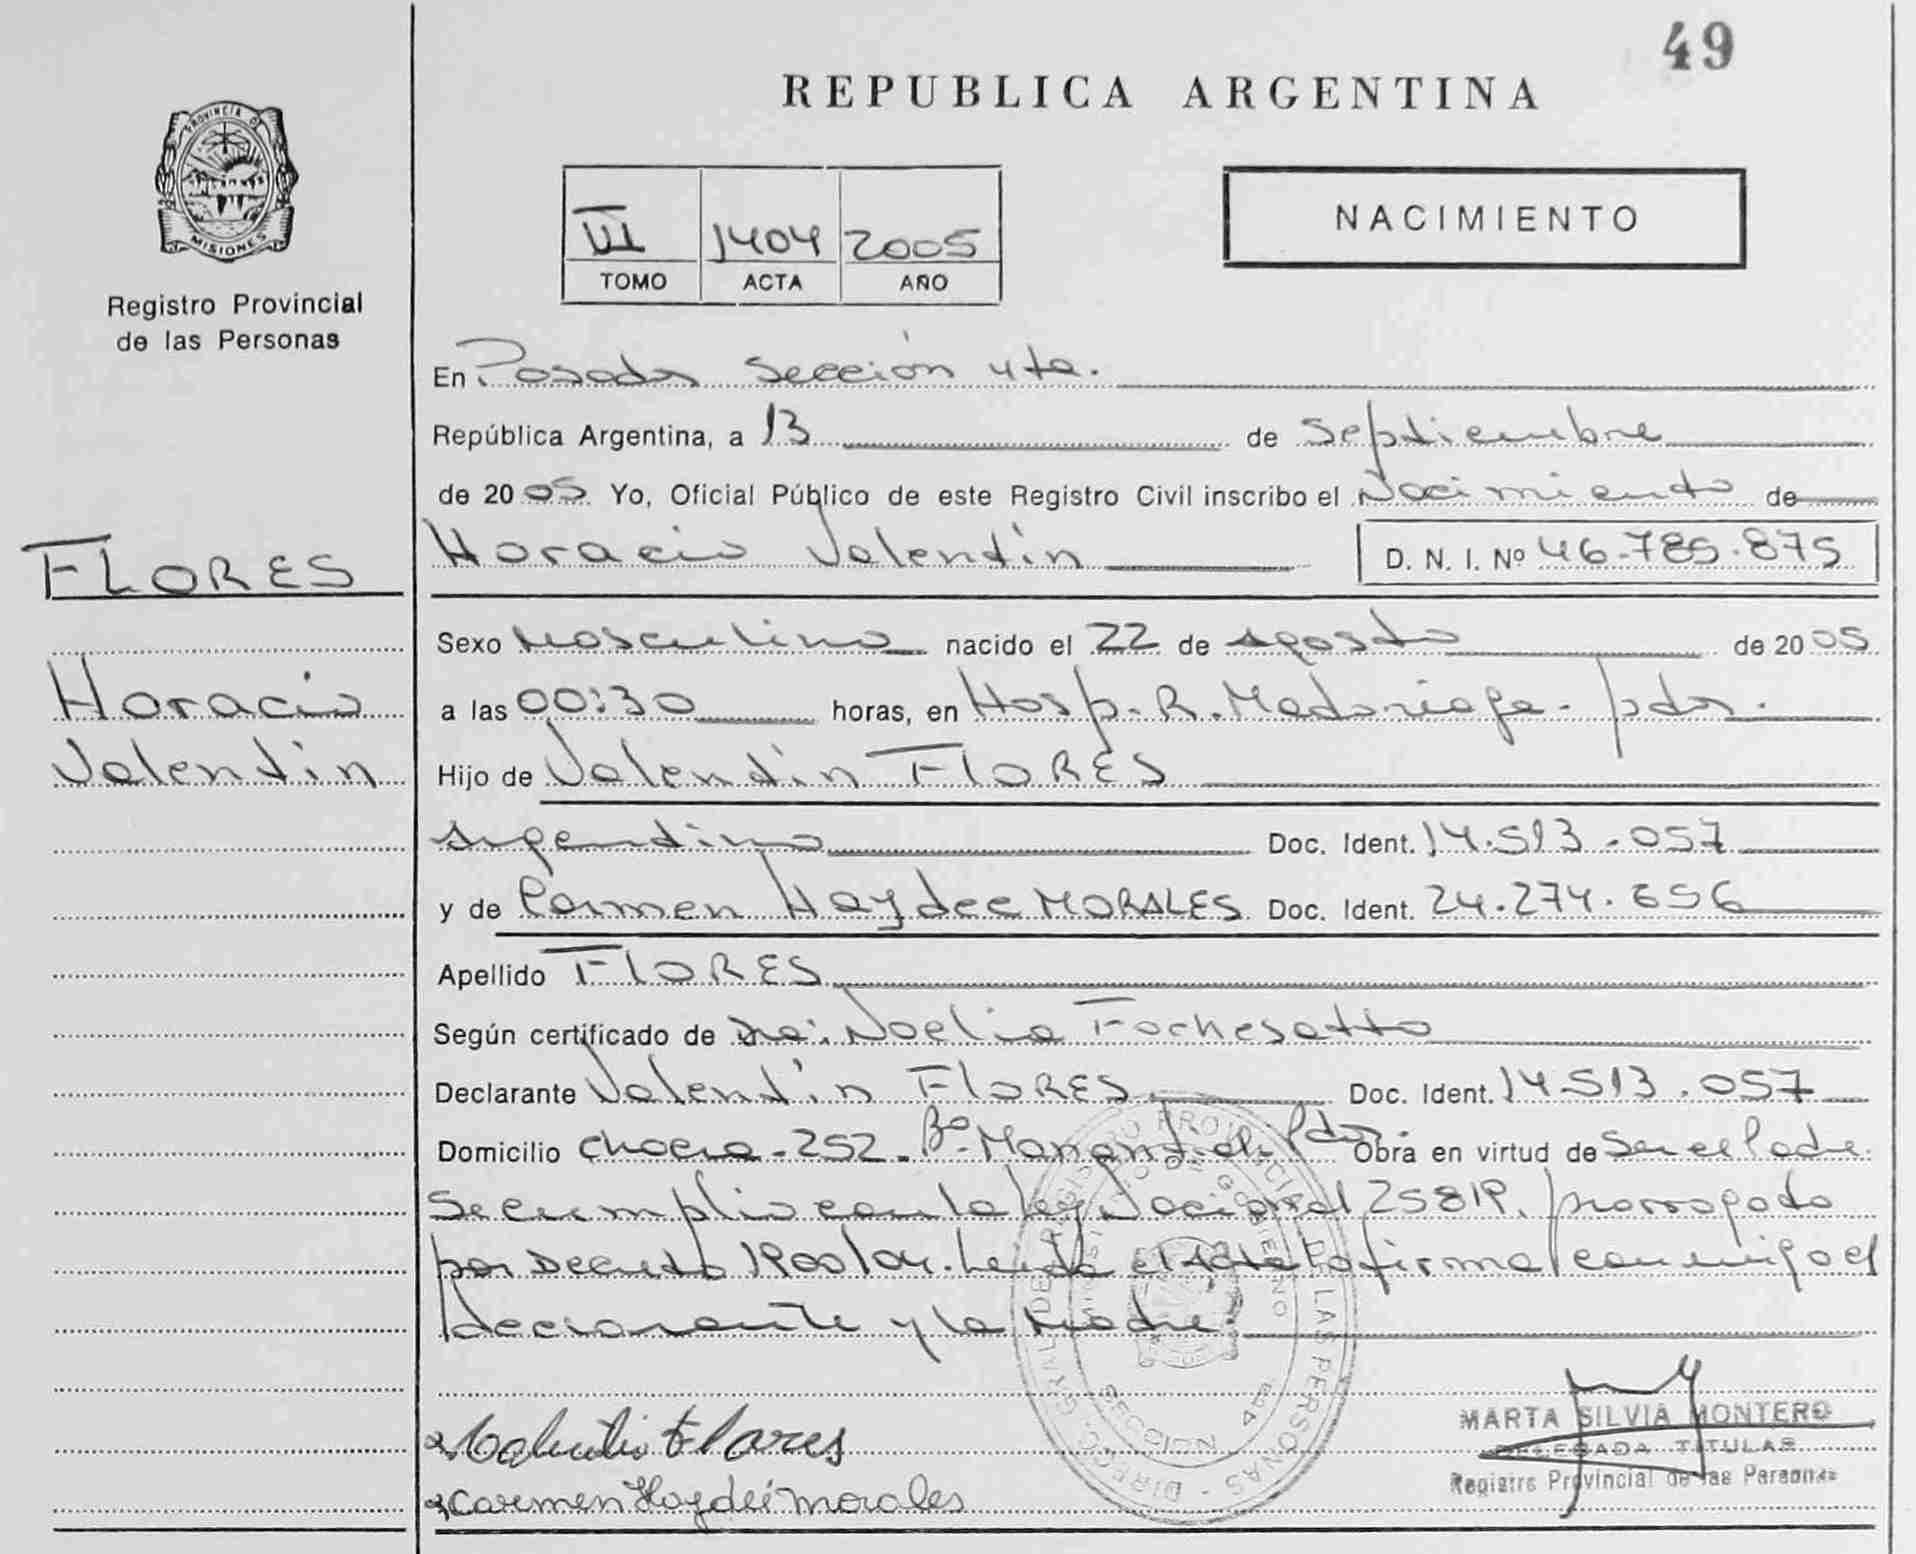 49
REPUBLICA ARGENTINA
PROVINCIA DE
MISIONES
Registro Provincial
de las Personas
VI 1404 2005
TOMO ACTA AÑO
NACIMIENTO
En Posadas Sección 4ta.
República Argentina, a 13 de septiembre
de 2005 Yo, Oficial Público de este Registro Civil inscribo el Nacimiento de
FLORES
Horacio Valentín
Horacio Valentín D. N. I. Nº 46.785.875
Sexo Masculino nacido el 22 de agosto de 2005
a las 00:30 horas, en Hosp. R. Madariaga - pdas.
Hijo de Valentín FLORES
argentino Doc. Ident. 14.513.057
y de Carmen Haydee MORALES Doc. Ident. 24.274.656
Apellido FLORES
Según certificado de Dra: Noelia Fochesatto
Declarante Valentín FLORES Doc. Ident. 14.513.057
Domicilio chacra-252- Bº Manantial Pdas. Obra en virtud de ser el Padre.
Se cumplió con la ley Nacional 25819, prorrogado
por Decreto 1900/04. Leída el Acta la firma conmigo el
declarante y la Madre
Valentin Flores
Carmen Haydeé morales
DIREC. GRAL. DE REGISTRO PROVINCIAL DE LAS PERSONAS
MINISTERIO DE GOBIERNO
SECCION 4ta
MARTA SILVIA MONTERO
DELEGADA TITULAR
Registro Provincial de las Personas